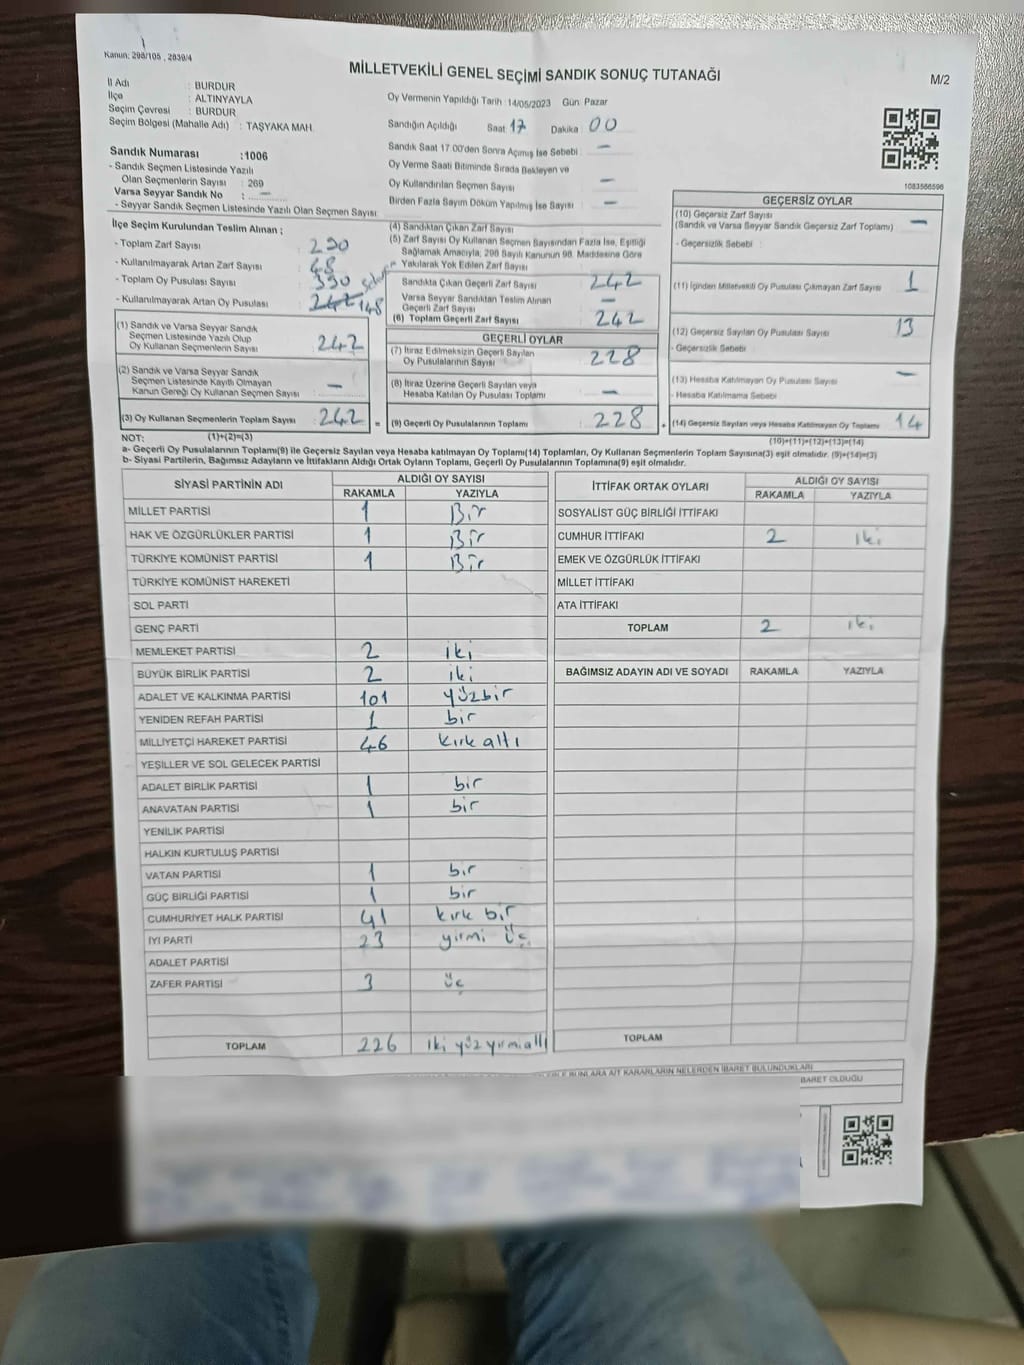 Kanun: 298/105 , 2839/4
MİLLETVEKİLİ GENEL SEÇİMİ SANDIK SONUÇ TUTANAĞI
M/2
İl Adı : BURDUR
İlçe : ALTINYAYLA
Seçim Çevresi : BURDUR
Seçim Bölgesi (Mahalle Adı) : TAŞYAKA MAH.
Oy Vermenin Yapıldığı Tarih : 14/05/2023 Gün: Pazar
Sandığın Açıldığı Saat 17 Dakika 00
Sandık Saat 17.00'den Sonra Açımış İse Sebebi : —
Oy Verme Saati Bitiminde Sırada Bekleyen ve
Oy Kullandırılan Seçmen Sayısı : —
Birden Fazla Sayım Döküm Yapılmış İse Sayısı : —
1083566596
Sandık Numarası : 1006
- Sandık Seçmen Listesinde Yazılı
Olan Seçmenlerin Sayısı : 269
Varsa Seyyar Sandık No : —
- Seyyar Sandık Seçmen Listesinde Yazılı Olan Seçmen Sayısı:
İlçe Seçim Kurulundan Teslim Alınan ;
- Toplam Zarf Sayısı : 290
- Kullanılmayarak Artan Zarf Sayısı : 48
- Toplam Oy Pusulası Sayısı : 390
- Kullanılmayarak Artan Oy Pusulası : 242 148
(1) Sandık ve Varsa Seyyar Sandık
Seçmen Listesinde Yazılı Olup
Oy Kullanan Seçmenlerin Sayısı : 242
(2) Sandık ve Varsa Seyyar Sandık
Seçmen Listesinde Kayıtlı Olmayan
Kanun Gereği Oy Kullanan Seçmen Sayısı : —
(3) Oy Kullanan Seçmenlerin Toplam Sayısı : 242 =
(4) Sandıktan Çıkan Zarf Sayısı :
(5) Zarf Sayısı Oy Kullanan Seçmen Sayısından Fazla İse, Eşitliği
Sağlamak Amacıyla, 298 Sayılı Kanunun 98. Maddesine Göre
Yakılarak Yok Edilen Zarf Sayısı :
Sandıkta Çıkan Geçerli Zarf Sayısı : 242
Varsa Seyyar Sandıktan Teslim Alınan
Geçerli Zarf Sayısı : —
(6) Toplam Geçerli Zarf Sayısı : 242
GEÇERLİ OYLAR
(7) İtiraz Edilmeksizin Geçerli Sayılan
Oy Pusulalarının Sayısı : 228
(8) İtiraz Üzerine Geçerli Sayılan veya
Hesaba Katılan Oy Pusulası Toplamı : —
(9) Geçerli Oy Pusulalarının Toplamı : 228 +
GEÇERSİZ OYLAR
(10) Geçersiz Zarf Sayısı : —
(Sandık ve Varsa Seyyar Sandık Geçersiz Zarf Toplamı)
- Geçersizlik Sebebi :
(11) İçinden Milletvekili Oy Pusulası Çıkmayan Zarf Sayısı : 1
(12) Geçersiz Sayılan Oy Pusulası Sayısı : 13
- Geçersizlik Sebebi :
(13) Hesaba Katılmayan Oy Pusulası Sayısı : —
- Hesaba Katılmama Sebebi :
(14) Geçersiz Sayılan veya Hesaba Katılmayan Oy Toplamı : 14
NOT: (1)+(2)=(3)
(10)+(11)+(12)+(13)=(14)
a- Geçerli Oy Pusulalarının Toplamı(9) ile Geçersiz Sayılan veya Hesaba katılmayan Oy Toplamı(14) Toplamları, Oy Kullanan Seçmenlerin Toplam Sayısına(3) eşit olmalıdır. (9)+(14)=(3)
b- Siyasi Partilerin, Bağımsız Adayların ve İttifakların Aldığı Ortak Oyların Toplamı, Geçerli Oy Pusulalarının Toplamına(9) eşit olmalıdır.
SİYASİ PARTİNİN ADI ALDIĞI OY SAYISI
RAKAMLA YAZIYLA
MİLLET PARTİSİ 1 Bir
HAK VE ÖZGÜRLÜKLER PARTİSİ 1 Bir
TÜRKİYE KOMÜNİST PARTİSİ 1 Bir
TÜRKİYE KOMÜNİST HAREKETİ
SOL PARTİ
GENÇ PARTİ
MEMLEKET PARTİSİ 2 iki
BÜYÜK BİRLİK PARTİSİ 2 iki
ADALET VE KALKINMA PARTİSİ 101 yüzbir
YENİDEN REFAH PARTİSİ 1 bir
MİLLİYETÇİ HAREKET PARTİSİ 46 kırk altı
YEŞİLLER VE SOL GELECEK PARTİSİ
ADALET BİRLİK PARTİSİ 1 bir
ANAVATAN PARTİSİ 1 bir
YENİLİK PARTİSİ
HALKIN KURTULUŞ PARTİSİ
VATAN PARTİSİ 1 bir
GÜÇ BİRLİĞİ PARTİSİ 1 bir
CUMHURİYET HALK PARTİSİ 41 kırk bir
İYİ PARTİ 23 yirmi üç
ADALET PARTİSİ
ZAFER PARTİSİ 3 üç
TOPLAM 226 iki yüz yirmialtı
İTTİFAK ORTAK OYLARI ALDIĞI OY SAYISI
RAKAMLA YAZIYLA
SOSYALİST GÜÇ BİRLİĞİ İTTİFAKI
CUMHUR İTTİFAKI 2 iki
EMEK VE ÖZGÜRLÜK İTTİFAKI
MİLLET İTTİFAKI
ATA İTTİFAKI
TOPLAM 2 iki
BAĞIMSIZ ADAYIN ADI VE SOYADI RAKAMLA YAZIYLA
TOPLAM
BUNLARA AİT KARARLARIN NELERDEN İBARET BULUNDUKLARI
BARET OLDUĞU